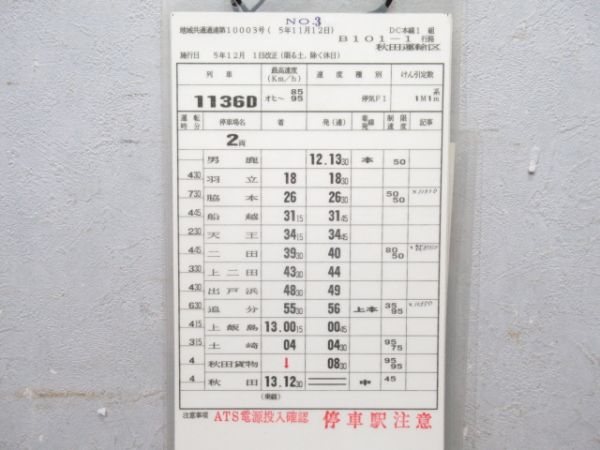 NO.3
地域共通通達第10003号( 5年11月12日)
DC本線1 組
B101-1 行路
秋田運輸区
施行日 5年12月 1日改正(限る土, 除く休日)
列 車 最高速度(Km/h) 速 度 種 別 けん引定数
1136D オヒ〜 85 95 停気F1 系 1M1m
運転時分 停車場名 着 発(通) 着発線 制限速度 記事
2両
男 鹿 12.1330 本 50
430 羽 立 18 1830
730 脇 本 26 2630 50 50
445 船 越 3115 3145
230 天 王 3415 3445
445 二 田 3930 40 80 50
330 上二田 4330 44
430 出戸浜 4830 49
630 追 分 5530 56 上本 35 95
415 上飯島 13.0015 0045
315 土 崎 04 0430 95 75
4 秋田貨物 ↓ 0830 95 95
4 秋 田 13.1230 中 45
(乗継)
注意事項 ATS電源投入確認 停車駅注意